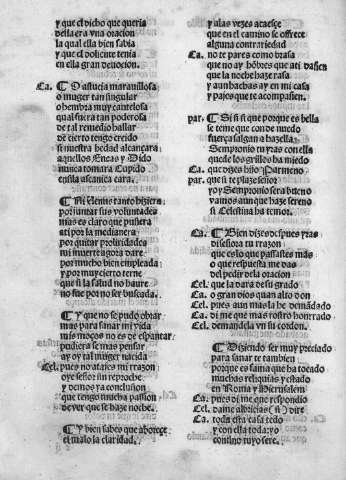 y que el dicho que queria
della era vna oracion
la qual ella bien sabia
y que el doliente tenia
en ella gran deuocion.
Ca. O astucia marauillosa
o muger tan singular
o hembra muy cautelosa
qual fuera tan poderosa
de tal remedio hallar
de cierto tengo creido
si nuestra hedad alcançara
aquellos Eneas y Dido
nunca tomara Cupido
Ni Elenis tanto hiziera
por juntar sus voluntades
mas es claro que pusiera
a ti por la medianera
por quitar prolixidades
mi muerte agora dare
por mucho bien empleada
y por muy cierto terne
que si la salud no haure
no fue por no ser buscada.
Y que no se pudo obrar
mas para sanar mi vida
mis moços no es de espantar
pudiera se mas pensar
ay oy tal muger nacida
Cel. pues no atajes mi rrazon
oye señor sin reproche
y demos ya conclusion
que tengo mucha passion
de ver que se haze noche.
Y bien sabes que aborece
el malo la claridad.
y alas vezes acaesçe
que en el camino se offrece
alguna contrariedad
Ca. no te pares como brasa
que no ay hõbres que ati dañen
que la noche haze rasa
y aun hachas ay en mi casa
y pajes que te acompañen.
par. Si si que porque es bella
se teme que con de nuedo
fuerça salgan a hazella
Sempronio tu yras con ella
que de los grillos ha miedo
Ca. que dizes hijo Parmeno
par. que si te plaze señor
yo y Sempronio sera bueno
vamos aun que haze sereno
si Celestina ha temor.
Ca. Bien dizes despues yras
di señora tu rrazon
que es lo que passastes mas
o que respuesta me das
del pedir dela oracion
Cel. que la dara de su grado
Ca. o gran dios quan alto don
Cel. pues aun mas le he demãdado
Ca. di me que mas rostro honrrado
Cel. demandela vn su cordon.
Diziendo ser muy preciado
para sanar te tambien
porque es fama que ha tocado
muchas reliquias y estado
en Roma y Hierusalem
Ca. pues di me que respondio
Cel. dame albricias (ñ) dire
Ca. toda esta casa tedo
y con ella todo yo
contino tuyo sere.